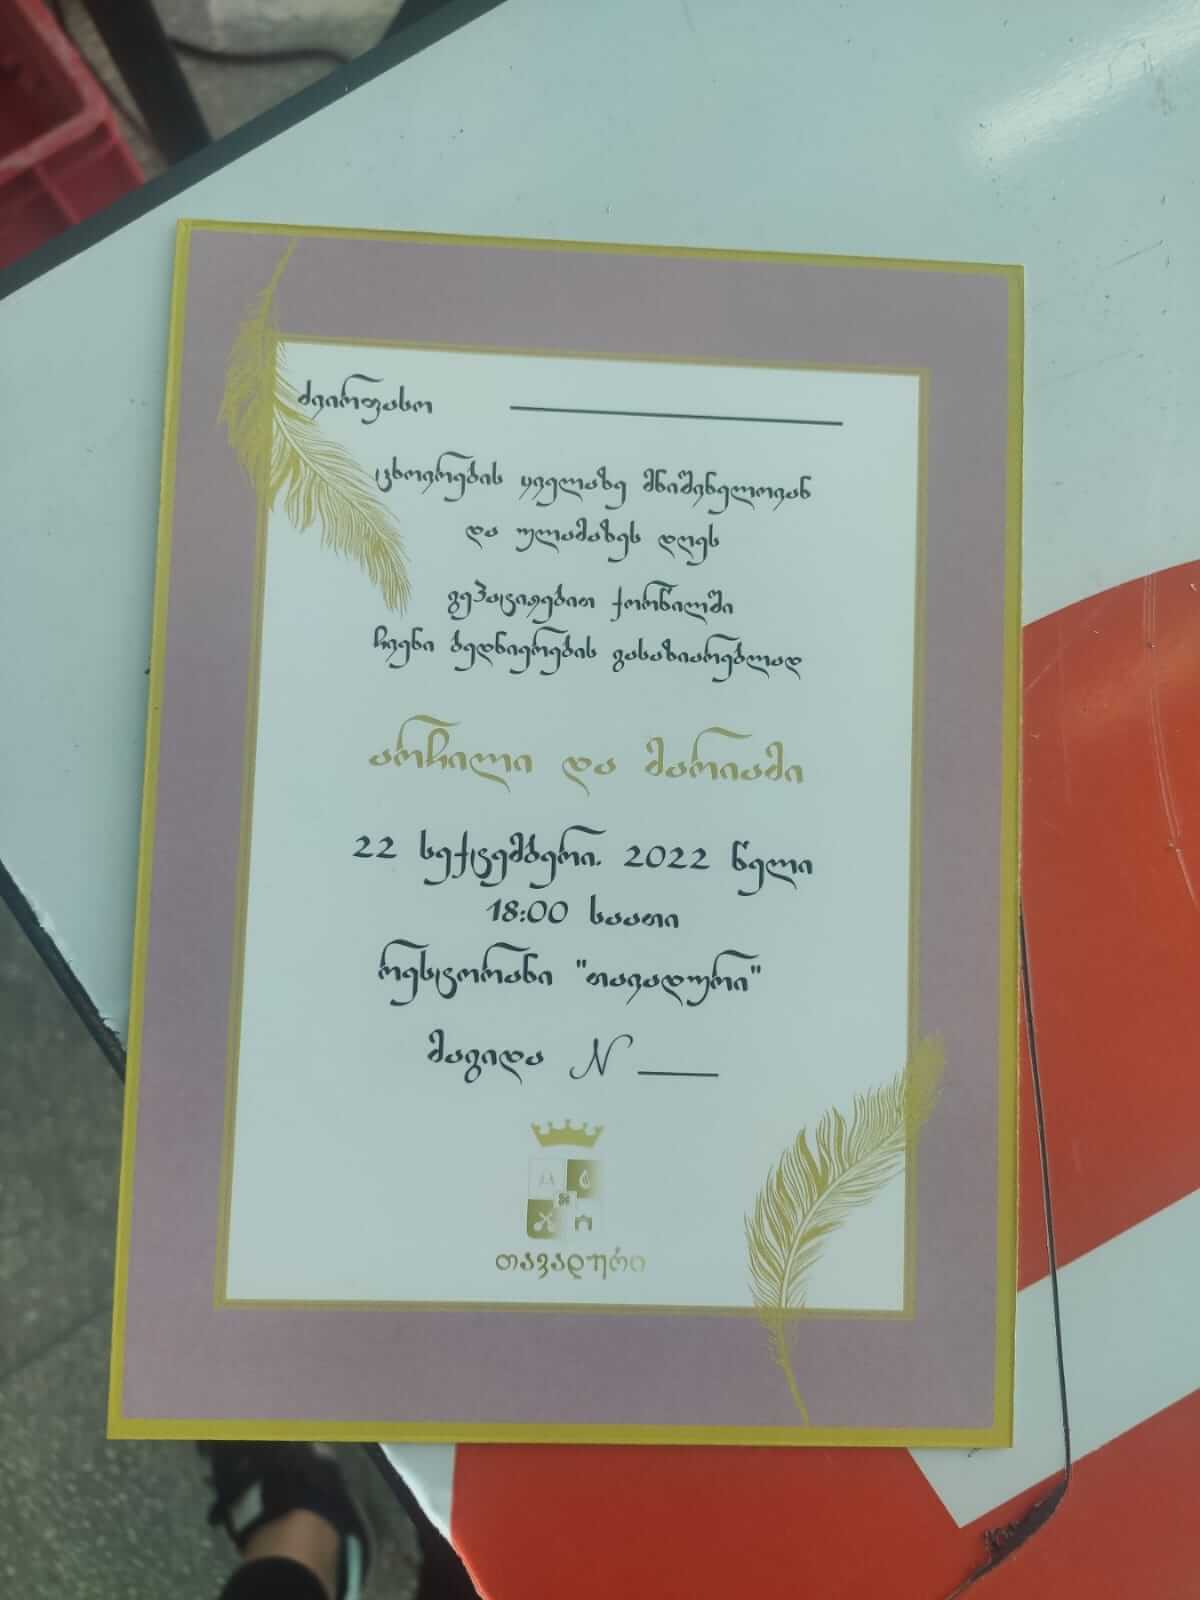 ძვირფასო
ცხოვრების ყველაზე მნიშვნელოვან
და ულამაზეს დღეს
გეპატიჟებით ქორწილში
ჩვენი ბედნიერების გასაზიარებლად
არჩილი და მარიამი
22 სექტემბერი. 2022 წელი
18:00 საათი
რესტორანი "თავადური"
მაგიდა N
თავადური